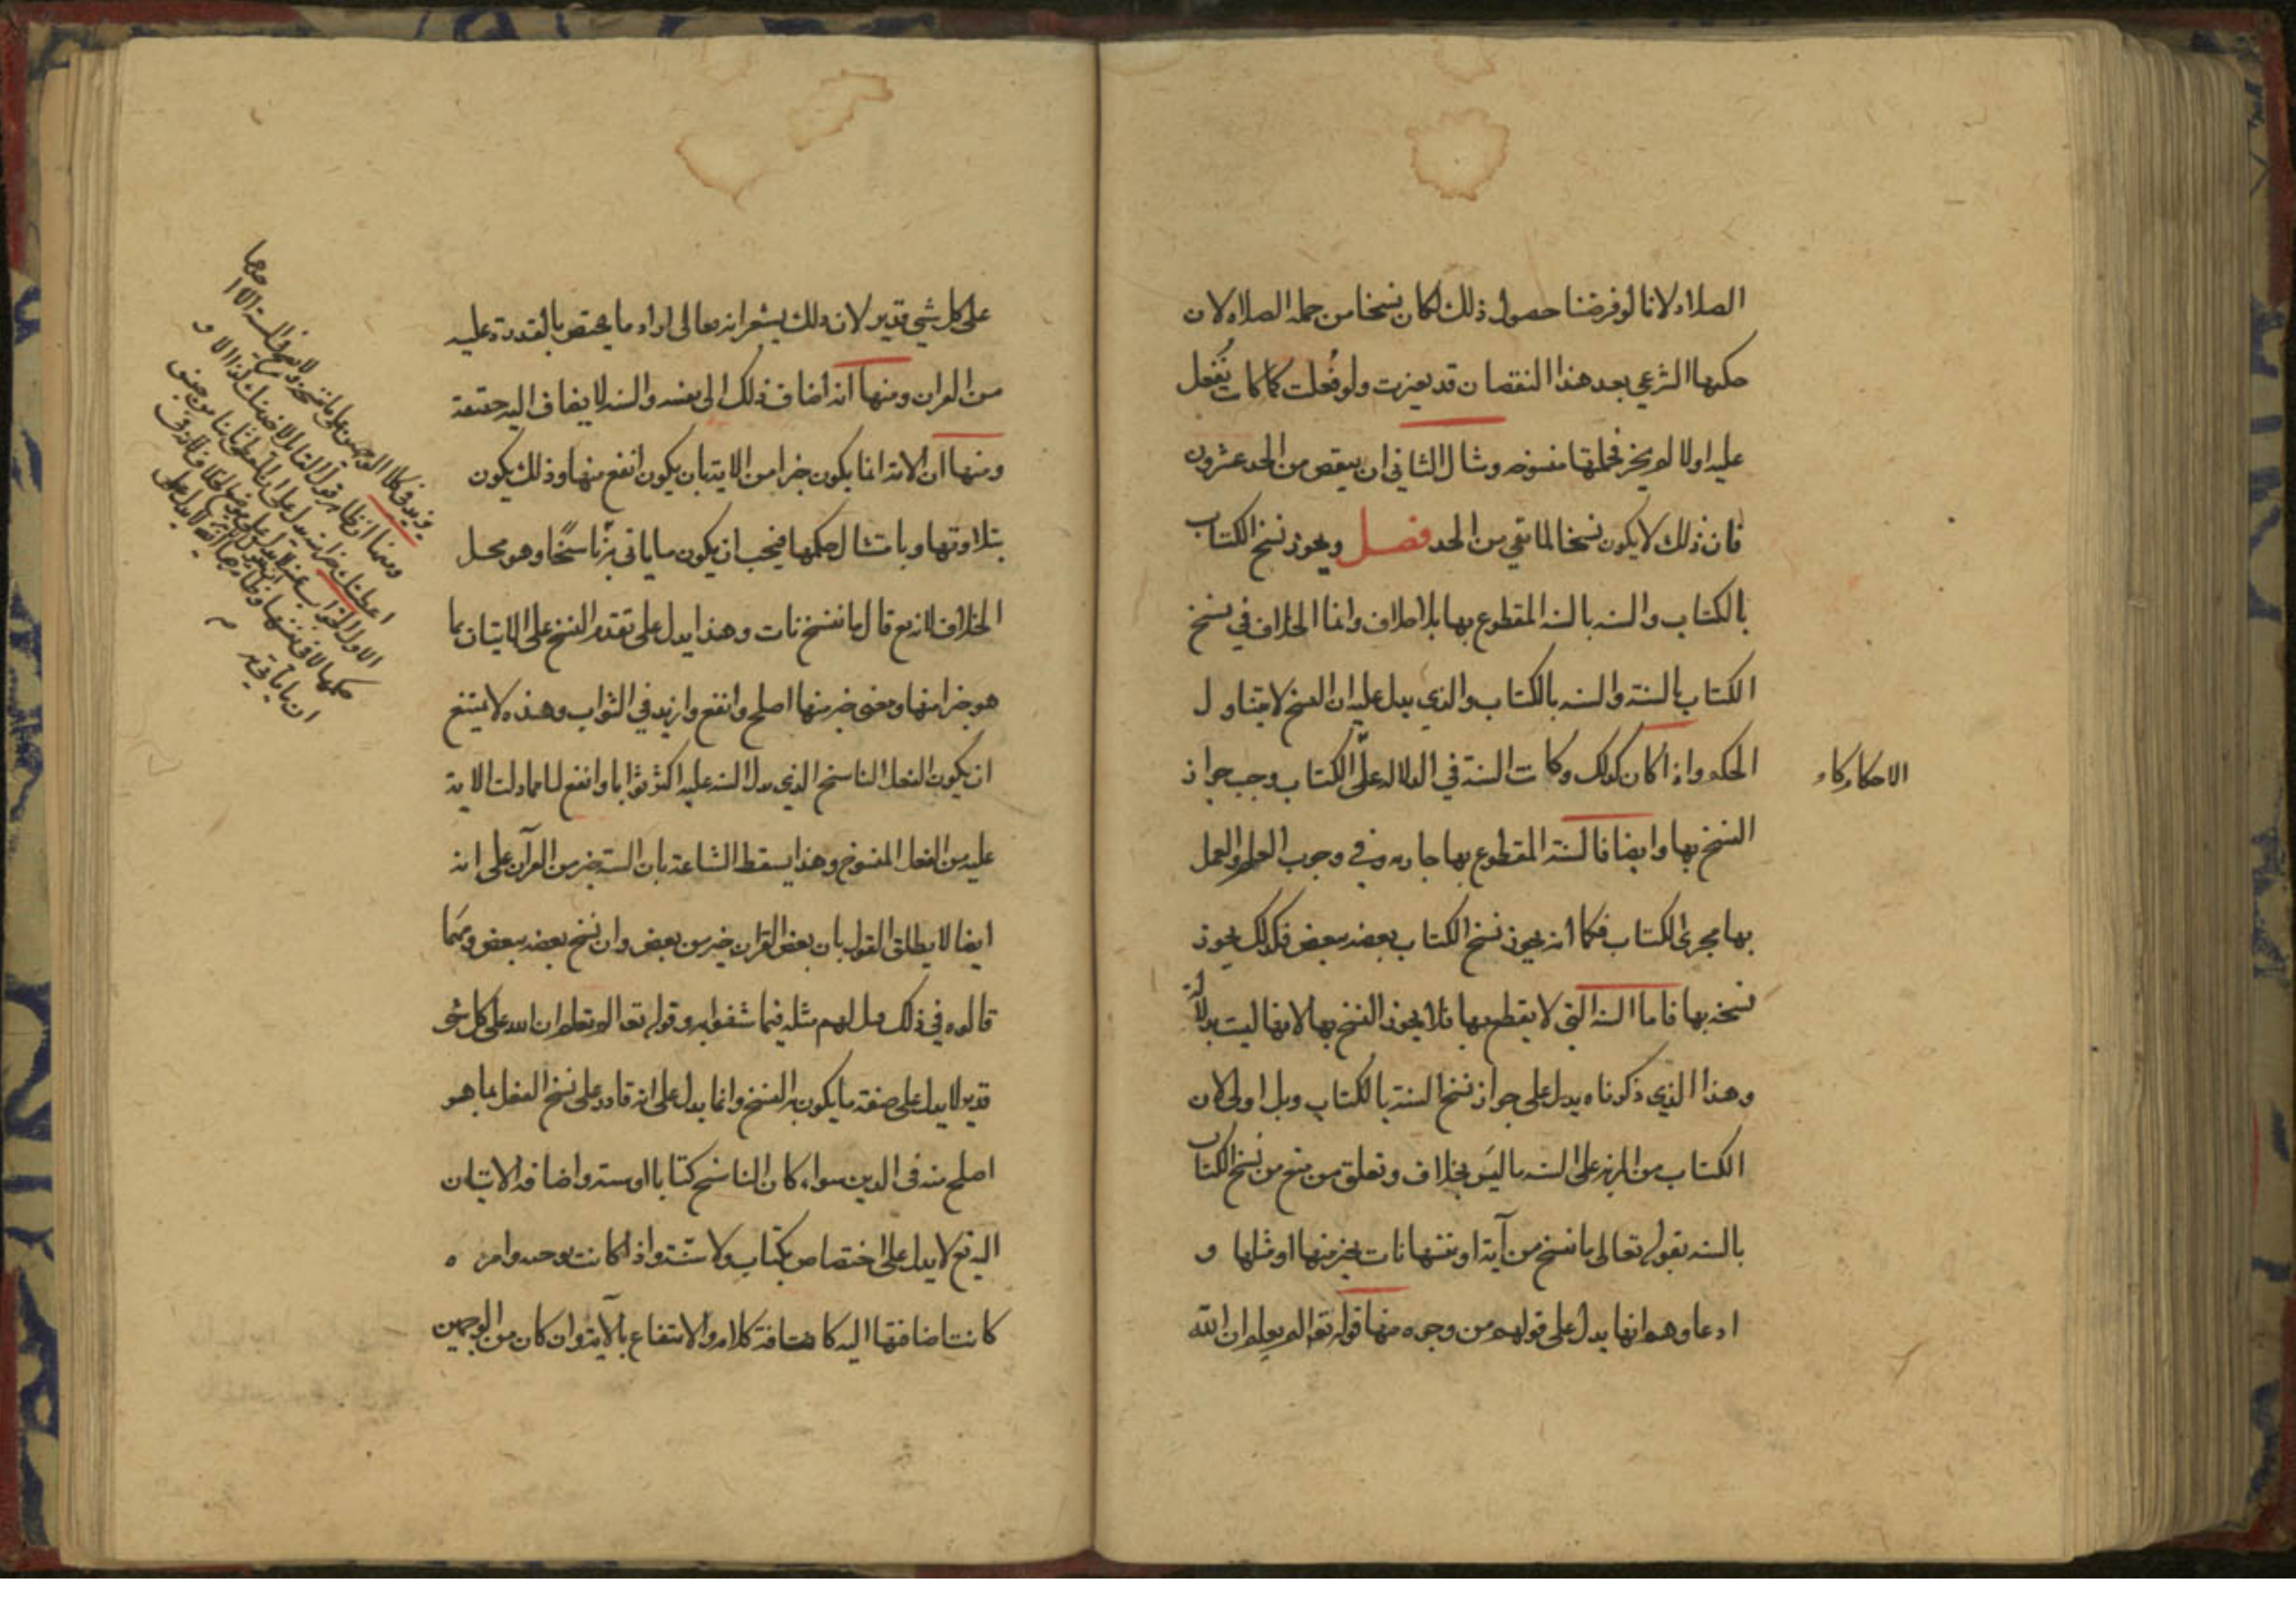 الصلاة لانا لو فرضنا حصول ذلك لكان نسخا من جملة الصلاة لان
حكمها الشرعي بعد هذا النقصان قد تغيرت ولو فعلت كما كانت تفعل
عليه اولا لم يجز فجملتها منسوخه ومثال الثاني ان ينقص من الحد عشرون
فان ذلك لا يكون نسخا لما بقي من الحد فصل ويجوز نسخ الكتاب
بالكتاب والسنه بالسنه المقطوع بها بلا خلاف وانما الخلاف في نسخ
الكتاب بالسنة والسنه بالكتاب والذي يدل عليه ان النسخ لا يتناول
الحكم واذا كان كذلك وكانت السنة في الدلاله على الكتاب وجب جواز
الاحكام كا
النسخ بها وايضا فالسنة المقطوع بها جاريه في وجوب العلم والعمل
بها مجرى الكتاب فكما انه يجوز نسخ الكتاب بعضه ببعض فكذلك يجوز
نسخه بها فاما السنه التي لا يقطع بها فلا يجوز النسخ بها لانها ليست بدلالة
وهذا الذي ذكرناه يدل على جواز نسخ السنة بالكتاب وبل اولى لان
الكتاب من المزيه على السنه ما ليس بخلاف وتعلق من منع من نسخ الكتاب
بالسنه بقوله تعالى ما ننسخ من آية او ننسها نات بخير منها او مثلها و
ادعاوهم انها يدل على قولهم من وجوه منها قوله تع الم تعلم ان الله
على كل شي قدير لان ذلك يشعر انه تعالى اراد ما يختص بالقدرة عليه
من القران ومنها انه اضاف ذلك الى نفسه والسنه لا يضاف اليه حقيقة
ومنها ان الاية انما يكون خيرا من الاية بان يكون انفع منها وذلك يكون
بتلاوتها وبامتثال حكمها فيجب ان يكون ما ياتي به ناسخا وهو محل
الخلاف لانه تع قال ما ننسخ نات وهذا يدل على تقدم النسخ على الاتيان بما
هو خير منها ومعنى خير منها اصلح وانفع وازيد في الثواب وهذه لا يمتنع
ان يكون الفعل الناسخ الذي يدل السنه عليه اكثر ثوابا وانفع لنا مما دلت الاية
عليه من الفعل المنسوخ وهذا يسقط الشناعة بان السنة خير من القرآن على انه
ايضا لا يطلق القول بان بعض القران خير من بعض وان نسخ بعضه ببعض ومهما
قالوه في ذلك قيل لهم مثله فيما شغفوا به وقوله تع الم تعلم ان الله على كل شي
قدير لا يدل على صفة ما يكون به النسخ وانما يدل على انه قادر على نسخ الفعل بما هو
اصلح منه في الدين سواء كان الناسخ كتابا او سنة واضافة الاتيان
اليه تع لا يدل على اختصاص بكتاب ولا سنة واذا كانت بوحيه وامره
كانت اضافتها اليه كاضافة كلامه والانتفاع بالآية وان كان من الوجهين